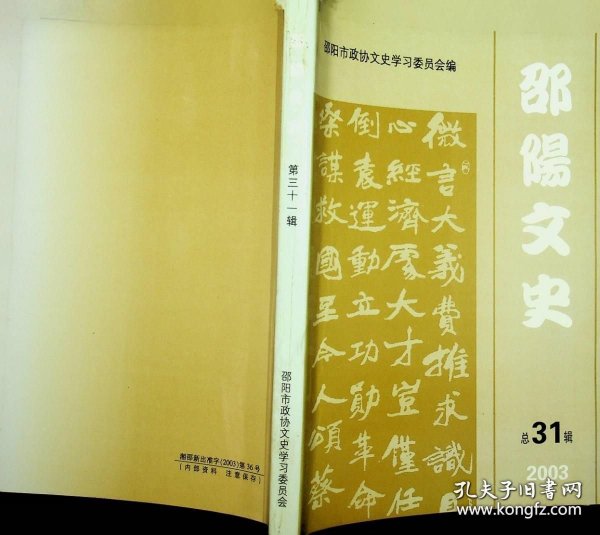 邵阳市政协文史学习委员会编
邵陽文史
微言大義費推求識
心經濟處大才豈僅任
倒袁運動立功勛革命
謀救國呈令人頌蔡
总31辑
2003
第三十一辑
邵阳市政协文史学习委员会
湘邵新出准字(2003)第36号
(内部资料 注意保存)
孔夫子旧书网
www.kongfz.com